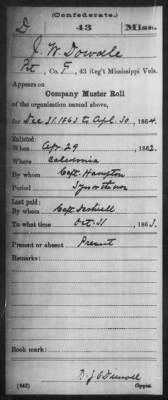 (Confederate.)
D 43 Miss.
J. W. Dowdle
Pvt, Co. F, 43 Reg't Mississippi Vols.
Appears on
Company Muster Roll
of the organization named above,
for Dec 31, 1863 to Apl. 30, 1864.
Enlisted:
When Apr. 29, 1862.
Where Caledonia
By whom Capt. Hampton
Period 3 yrs or the war
Last paid:
By whom Capt.
To what time Oct. 31, 1863.
Present or absent Present
Remarks:
Book mark:
(642) Copyist.